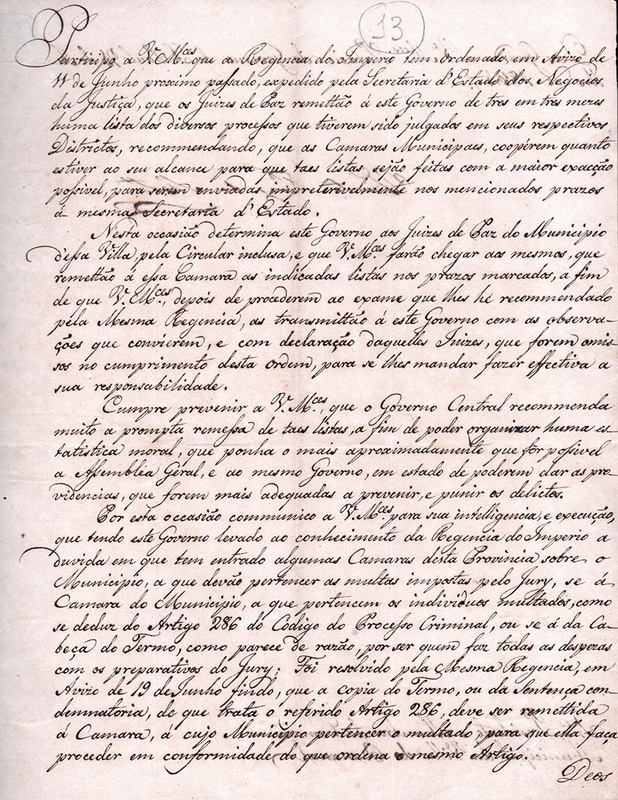 13
Participo a V.Mces que a Regencia do Imperio tem Ordenado, em Avizo de
11 de Junho proximo passado, expedido pela Secretaria d'Estado dos Negocios
da Justiça, que os Juizes de Paz remettão á este Governo de tres em tres mezes
huma lista dos diversos processos que tiverem sido julgados em seus respectivos
Districtos, recommendando, que as Camaras Municipaes, coopérem quanto
estiver ao seu alcance para que taes listas sejão feitas com a maior exacção
possivel, para serem enviadas impreterivelmente nos mencionados prazos
á mesma Secretaria d'Estado.
Nesta occasião determina este Governo aos Juizes de Paz do Municipio
d'essa Villa, pela Circular inclusa, e que V.Mces farão chegar aos mesmos, que
remettão á essa Camara as indicadas listas nos prazos marcados, a fim
de que V.Mces, depois de procederem ao exame que lhes he recommendado
pela Mesma Regencia, as transmittão á este Governo com as observa-
ções que convierem, e com declaração daquelles Juizes, que forem omis-
sos no cumprimento desta ordem, para se lhes mandar fazer effectiva a
sua responsabilidade.
Cumpre prevenir a V.Mces, que o Governo Central recommenda
muito a prompta remessa de taes listas, a fim de poder organizar huma es-
tatistica moral, que ponha o mais aproximadamente que fôr possivel
a Assemblea Geral, e ao mesmo Governo, em estado de poderem dar as pro-
videncias, que forem mais adequadas a prevenir, e punir os delictos.
Por esta occasião communico a V.Mces para sua intelligencia, e execução,
que tendo este Governo levado ao conhecimento da Regencia do Imperio a
duvida em que tem entrado algumas Camaras desta Provincia sobre o
Municipio, a que devão pertencer as multas impostas pelo Jury, se á
Camara do Municipio, a que pertencem os individuos multados, como
se deduz do Artigo 286 do Codigo do Processo Criminal, ou se á da Ca-
beça do Termo, como parece de razão, por ser quem faz todas as despezas
com os preparativos do Jury: Foi resolvido pela Mesma Regencia, em
Avizo de 19 de Junho findo, que a copia do Termo, ou da Sentença con-
demnatória, de que trata o referido Artigo 286, deve ser remettida
á Camara, a cujo Municipio pertencer o multado, para que ella faça
proceder em conformidade do que ordena o mesmo Artigo.
Deos